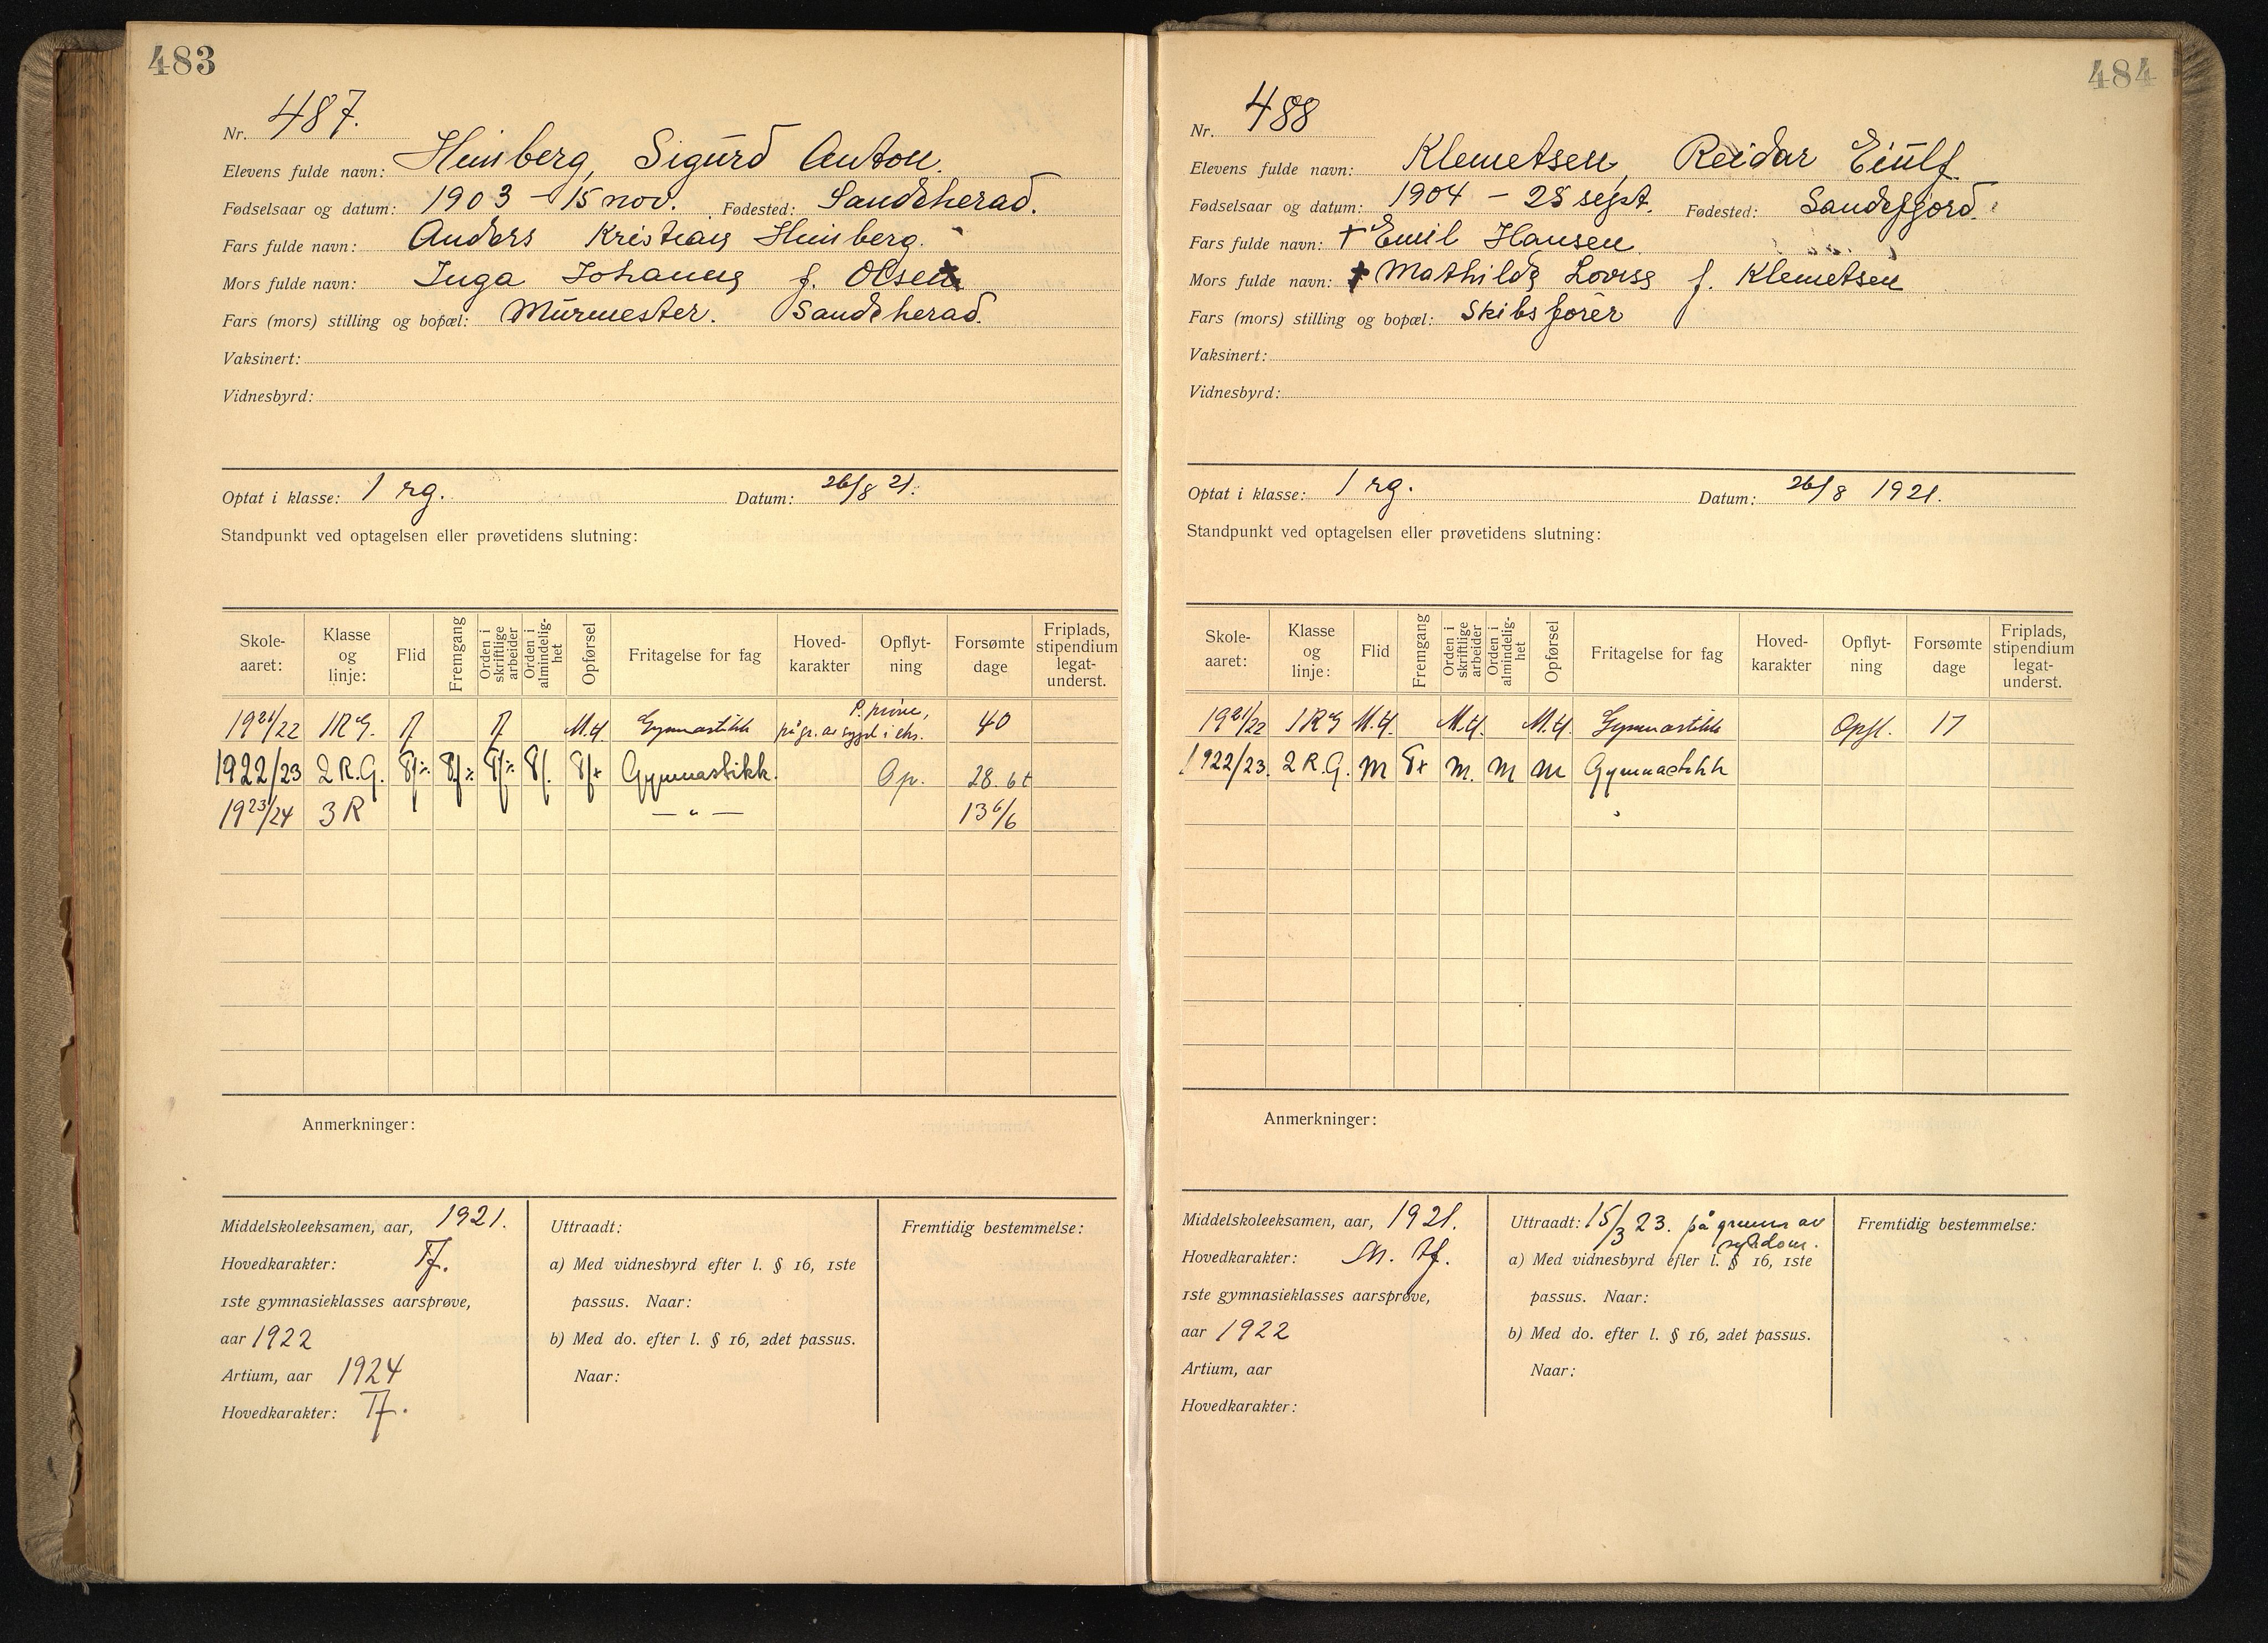 483
Nr. 487.
Elevens fulde navn: Heinberg, Sigurd Anton.
Fødselsaar og datum: 1903 – 15 nov. Fødested: Sandeherad.
Fars fulde navn: Anders Kristian Heinberg.
Mors fulde navn: Inga Johanne f. Olsen
Fars (mors) stilling og bopæl: Murmester. Sandeherad.
Vaksinert:
Vidnesbyrd:
Optat i klasse: 1 rg. Datum: 26/8 21.
Standpunkt ved optagelsen eller prøvetidens slutning:
Skole-aaret: Klasse og linje: Flid Fremgang Orden i skriftlige arbeider Orden i almindelig-het Opførsel Fritagelse for fag Hoved-karakter Opflyt-ning Forsømte dage Friplads, stipendium legat-underst.
1921/22 1RG M.tf. Gymnastikk på gr. av sygd. i eks. 40
1922/23 2 R.G. Gymnastikk. Op. 28. 6t
1923/24 3 R — „ — 13 6/6
Anmerkninger:
Middelskoleeksamen, aar, 1921.
Hovedkarakter: Tf.
1ste gymnasieklasses aarsprøve,
aar 1922
Artium, aar 1924
Hovedkarakter: Tf.
Uttraadt:
a) Med vidnesbyrd efter l. § 16, 1ste
passus. Naar:
b) Med do. efter l. § 16, 2det passus.
Naar:
Fremtidig bestemmelse:
484
Nr. 488
Elevens fulde navn: Klemetsen, Reidar Eiulf.
Fødselsaar og datum: 1904 – 25 sept. Fødested: Sandefjord.
Fars fulde navn: † Emil Hansen
Mors fulde navn: † Mathilde Lovise f. Klemetsen
Fars (mors) stilling og bopæl: Skibsfører
Vaksinert:
Vidnesbyrd:
Optat i klasse: 1 rg. Datum: 26/8 1921.
Standpunkt ved optagelsen eller prøvetidens slutning:
Skole-aaret: Klasse og linje: Flid Fremgang Orden i skriftlige arbeider Orden i almindelig-het Opførsel Fritagelse for fag Hoved-karakter Opflyt-ning Forsømte dage Friplads, stipendium legat-underst.
1921/22 1RG M.tf. M.tf. M.tf. Gymnastikk Opfl. 17
1922/23. 2 R.G. M T+ M. M M Gymnastikk
Anmerkninger:
Middelskoleeksamen, aar, 1921.
Hovedkarakter: M. tf.
1ste gymnasieklasses aarsprøve,
aar 1922
Artium, aar
Hovedkarakter:
Uttraadt: 15/3 23. på grunn av
sykdom.
a) Med vidnesbyrd efter l. § 16, 1ste
passus. Naar:
b) Med do. efter l. § 16, 2det passus.
Naar:
Fremtidig bestemmelse: